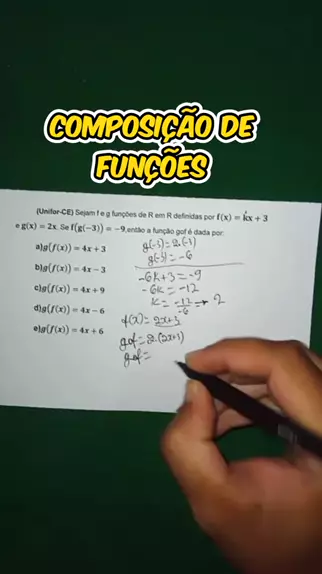 COMPOSIÇÃO DE
FUNÇÕES
(Unifor-CE) Sejam f e g funções de R em R definidas por f(x) = kx + 3
e g(x) = 2x. Se f(g(−3)) = −9,então a função gof é dada por:
a)g(f(x)) = 4x + 3
b)g(f(x)) = 4x − 3
c)g(f(x)) = 4x + 9
d)g(f(x)) = 4x − 6
e)g(f(x)) = 4x + 6
g(-3) = 2.(-3)
g(-3) = -6
-6k+3 = -9
-6k = -12
k = -12/-6 → 2
f(x) = 2x+3
gof = 2.(2x+3)
gof =